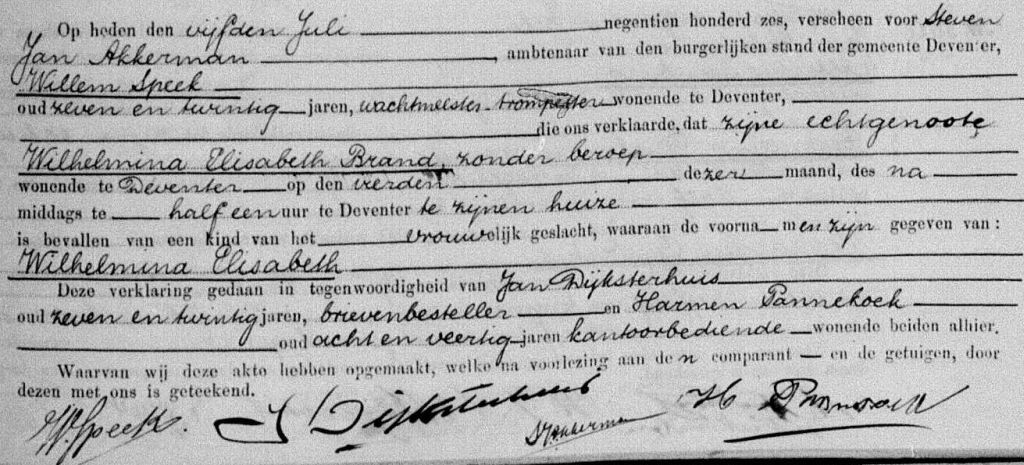 Op heden den vijfden Juli negentien honderd zes, verscheen voor Steven
Jan Akkerman, ambtenaar van den burgerlijken stand der gemeente Deventer,
Willem Speek
oud zeven en twintig jaren, wachtmeester-trompetter wonende te Deventer,
die ons verklaarde, dat zijne echtgenoote
Wilhelmina Elisabeth Brand, zonder beroep
wonende te Deventer op den vierden dezer maand, des na
middags te half een uur te Deventer te zijnen huize
is bevallen van een kind van het vrouwelijk geslacht, waaraan de voorna men zijn gegeven van:
Wilhelmina Elisabeth
Deze verklaring gedaan in tegenwoordigheid van Jan Dijksterhuis
oud zeven en twintig jaren, brievenbesteller en Harmen Pannekoek
oud acht en veertig jaren kantoorbediende wonende beiden alhier.
Waarvan wij deze akte hebben opgemaakt, welke na voorlezing aan de n comparant — en de getuigen, door
dezen met ons is geteekend.
W. Speek. J Dijksterhuis SJAkkerman H Pannekoek